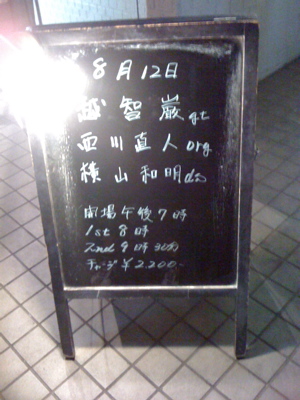 8月12日
越智巌gt
西川直人org
横山和明ds
開場午後7時
1st 8時
2nd 9時30分
チャージ¥2,200-